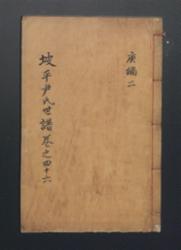 庚編二
坡平尹氏世譜卷之四十六